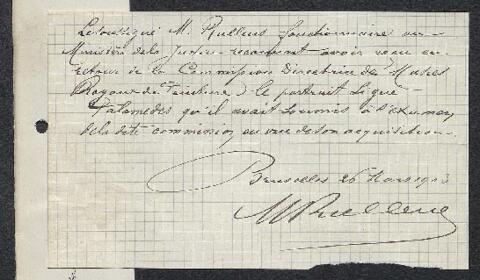 Le soussigné M. Rulleus fonctionnaire au
Ministère de la Justice reconnait avoir reçu en
retour de la Commission Directrice des Musées
Royaux de Peinture le portrait signé
Palamedes qu'il avait soumis à l'examen
de la dite commission en vue de son acquisition.
Bruxelles 26 Mars 1903